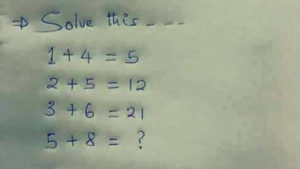 ⇒ Solve this ----
1 + 4 = 5
2 + 5 = 12
3 + 6 = 21
5 + 8 = ?